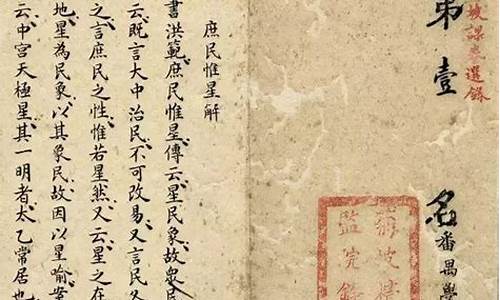 坡課卷選錄
弟壹名
番禺學
庶民惟星解
書洪範庶民惟星傳云星民象故眾民
云既言大中治民不可改易又言民又
之言庶民之性惟若星然又云星之在
地星為民象以其象民故因以星喻案
云中宮天極星其一明者太乙常居也